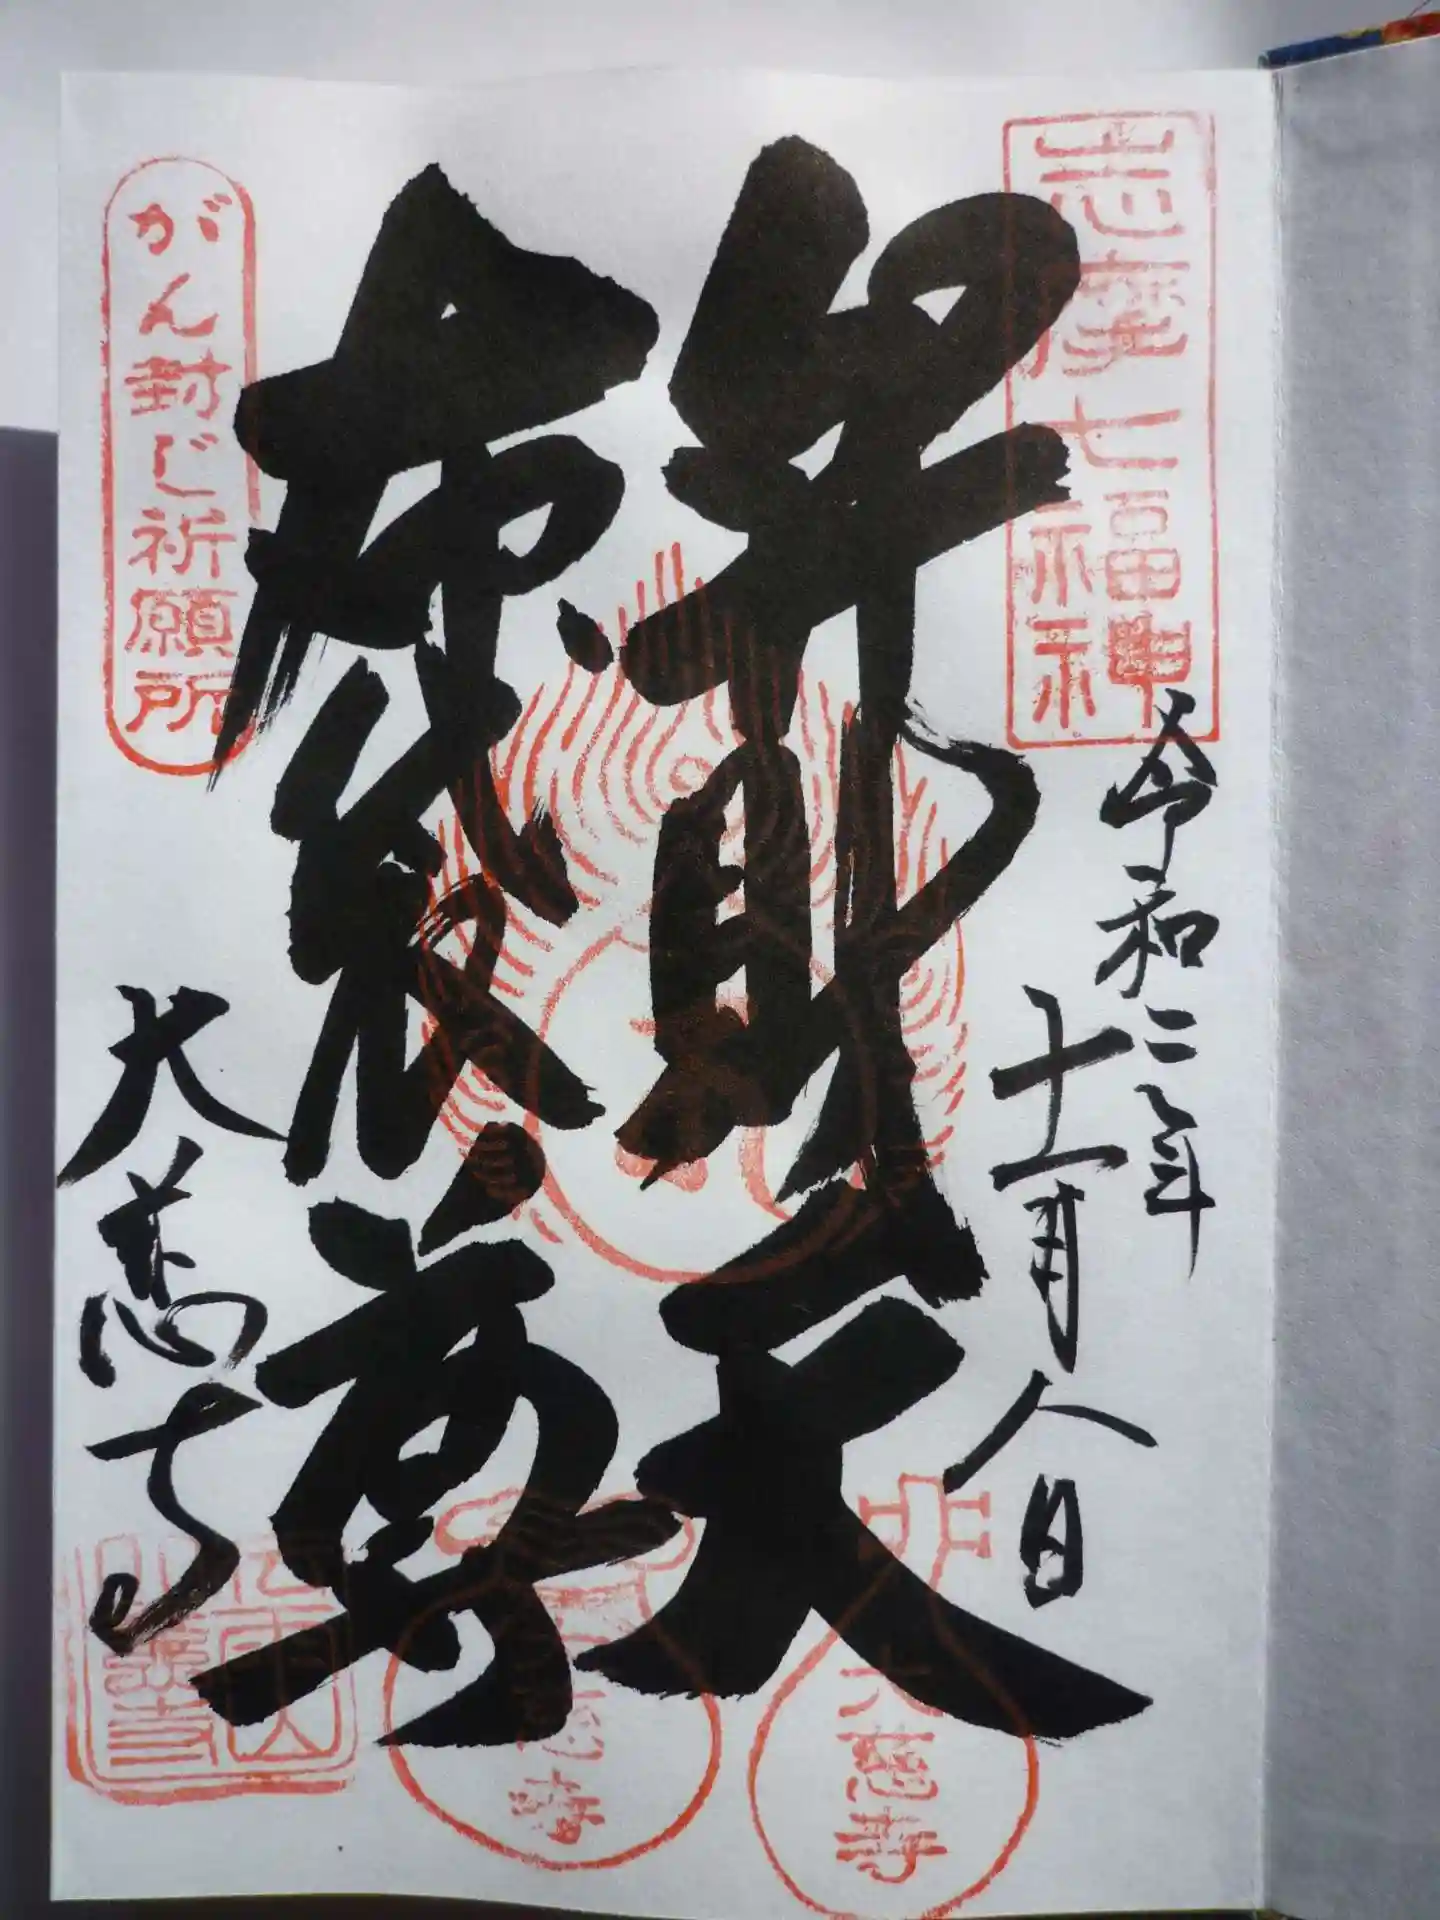 志度七福神
令和二年
十一月八日
弁財天
布袋尊
がん封じ祈願所
大慈寺
大慈寺
慈寺